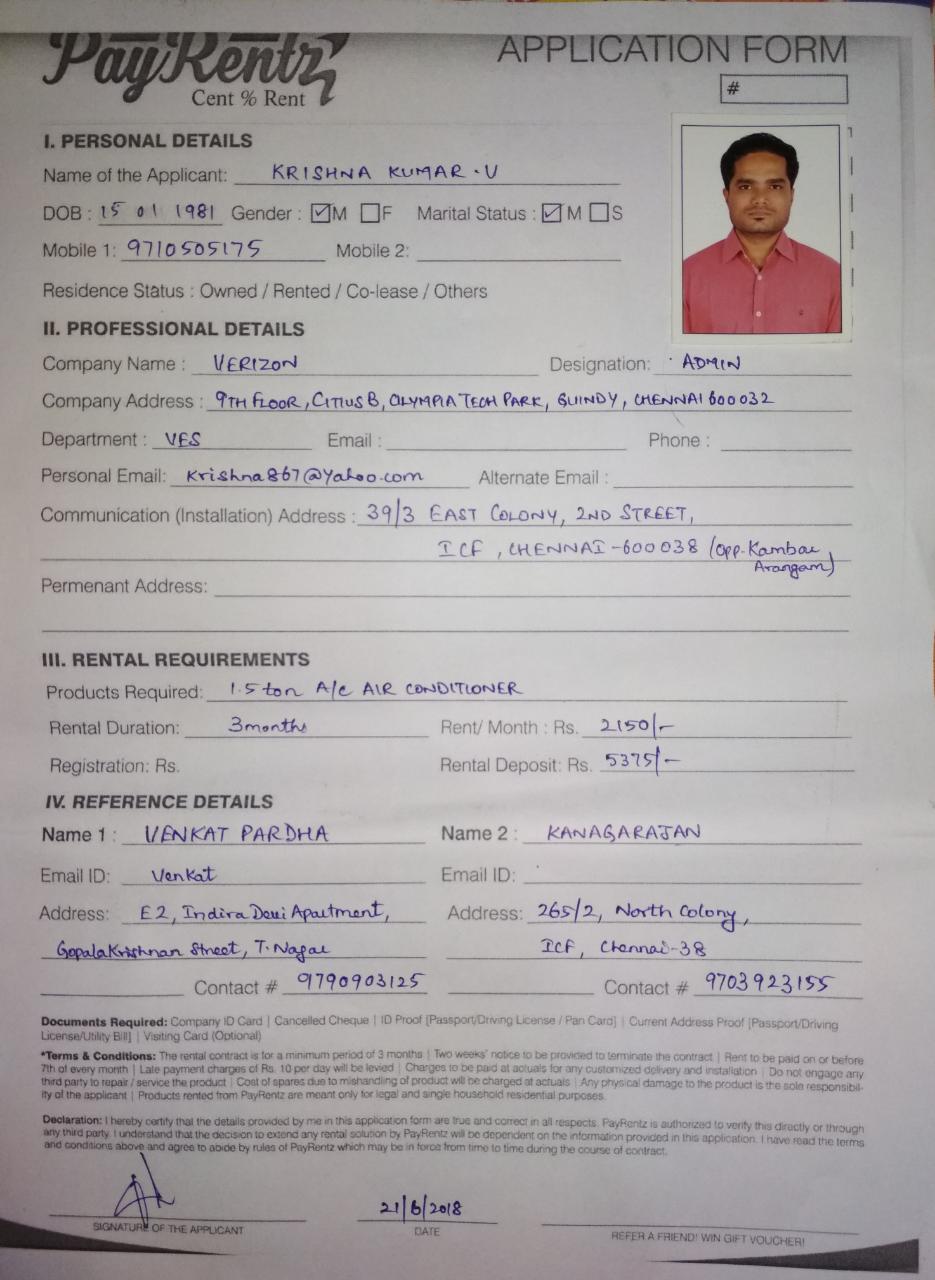 PayRentz
Cent % Rent
APPLICATION FORM
#
I. PERSONAL DETAILS
Name of the Applicant: KRISHNA KUMAR.V
DOB : 15 01 1981 Gender : ☑M ☐F Marital Status : ☑M ☐S
Mobile 1: 9710505175 Mobile 2:
Residence Status : Owned / Rented / Co-lease / Others
II. PROFESSIONAL DETAILS
Company Name : VERIZON Designation: ADMIN
Company Address : 9TH FLOOR, CITIUS B, OLYMPIA TECH PARK, GUINDY, CHENNAI 600032
Department : VES Email : Phone :
Personal Email: Krishna867@Yahoo.com Alternate Email :
Communication (Installation) Address : 39/3 EAST COLONY, 2ND STREET,
ICF, CHENNAI-600038 (Opp. Kambar
Arangam)
Permenant Address:
III. RENTAL REQUIREMENTS
Products Required: 1.5 ton A/c AIR CONDITIONER
Rental Duration: 3months Rent/ Month : Rs. 2150/-
Registration: Rs. Rental Deposit: Rs. 5375/-
IV. REFERENCE DETAILS
Name 1 : VENKAT PARDHA Name 2 : KANAGARAJAN
Email ID: Venkat Email ID:
Address: E2, Indira Devi Apartment, Address: 265/2, North Colony,
GopalaKrishnan Street, T. Nagar ICF, Chennai-38
Contact # 9790903125 Contact # 9703923155
Documents Required: Company ID Card | Cancelled Cheque | ID Proof [Passport/Driving License / Pan Card] | Current Address Proof [Passport/Driving
License/Utility Bill] | Visiting Card (Optional)
*Terms & Conditions: The rental contract is for a minimum period of 3 months | Two weeks' notice to be provided to terminate the contract | Rent to be paid on or before
7th of every month | Late payment charges of Rs. 10 per day will be levied | Charges to be paid at actuals for any customized delivery and installation | Do not engage any
third party to repair / service the product | Cost of spares due to mishandling of product will be charged at actuals | Any physical damage to the product is the sole responsibil-
ity of the applicant | Products rented from PayRentz are meant only for legal and single household residential purposes.
Declaration: I hereby certify that the details provided by me in this application form are true and correct in all respects. PayRentz is authorized to verify this directly or through
any third party. I understand that the decision to extend any rental solution by PayRentz will be dependent on the information provided in this application. I have read the terms
and conditions above and agree to abide by rules of PayRentz which may be in force from time to time during the course of contract.
21/6/2018
SIGNATURE OF THE APPLICANT DATE REFER A FRIEND! WIN GIFT VOUCHER!